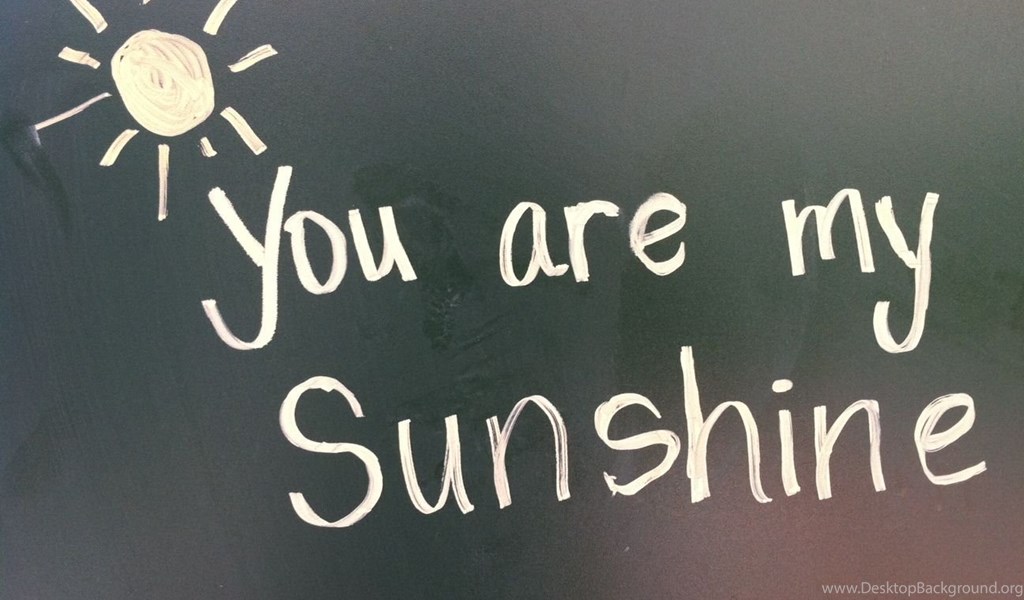 you are my
Sunshine
www.DesktopBackground.org